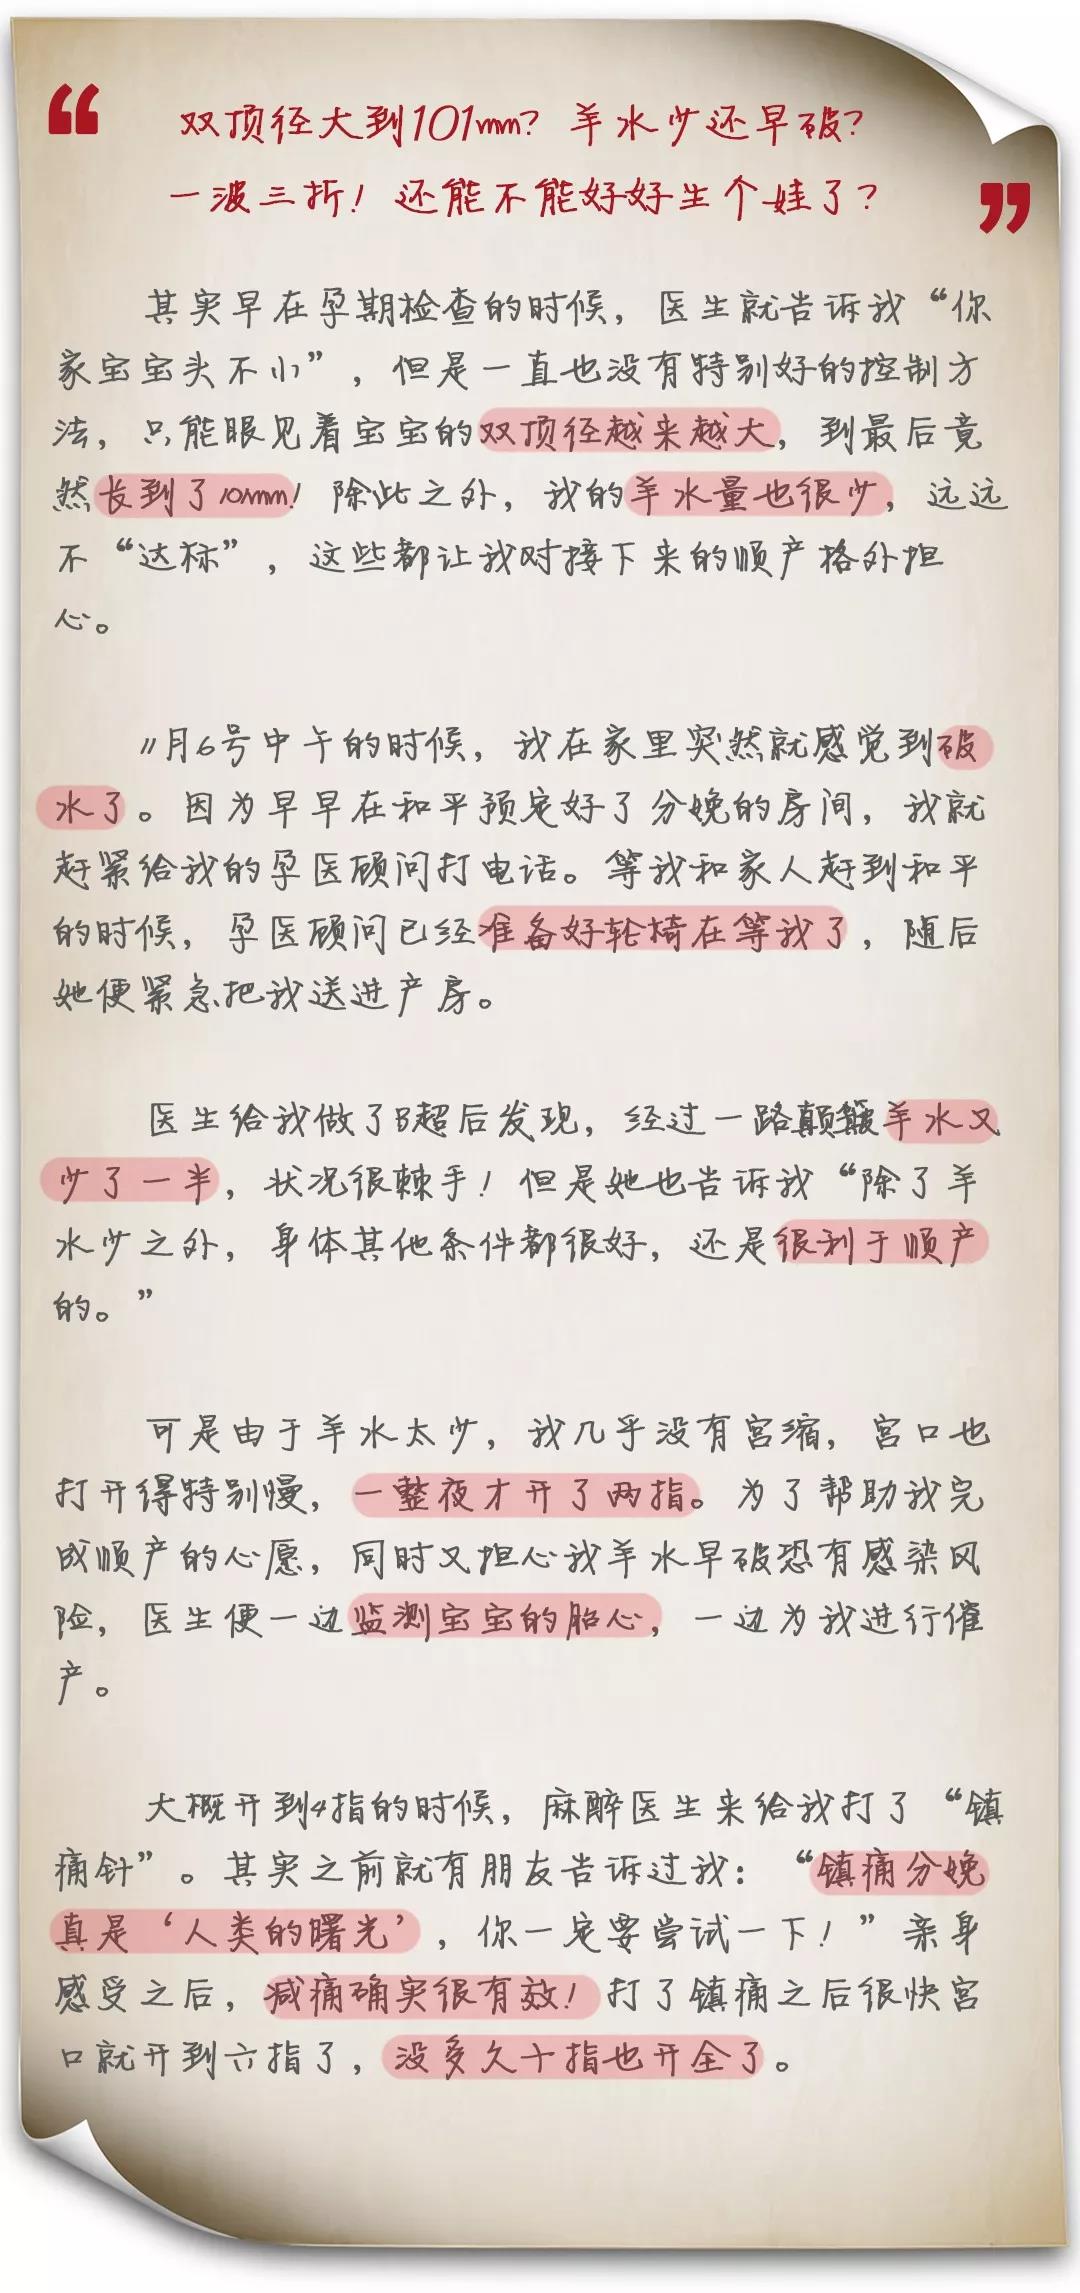 “ 双顶径大到101mm？羊水少还早破？
一波三折！还能不能好好生个娃了？ ”
其实早在孕期检查的时候，医生就告诉我“你
家宝宝头不小”，但是一直也没有特别好的控制方
法，只能眼见着宝宝的双顶径越来越大，到最后竟
然长到了101mm！除此之外，我的羊水量也很少，远远
不“达标”，这些都让我对接下来的顺产格外担
心。
11月6号中午的时候，我在家里突然就感觉到破
水了。因为早早在和平预定好了分娩的房间，我就
赶紧给我的孕医顾问打电话。等我和家人赶到和平
的时候，孕医顾问已经准备好轮椅在等我了，随后
她便紧急把我送进产房。
医生给我做了B超后发现，经过一路颠簸羊水又
少了一半，状况很棘手！但是她也告诉我“除了羊
水少之外，身体其他条件都很好，还是很利于顺产
的。”
可是由于羊水太少，我几乎没有宫缩，宫口也
打开得特别慢，一整夜才开了两指。为了帮助我完
成顺产的心愿，同时又担心我羊水早破恐有感染风
险，医生便一边监测宝宝的胎心，一边为我进行催
产。
大概开到4指的时候，麻醉医生来给我打了“镇
痛针”。其实之前就有朋友告诉过我：“镇痛分娩
真是‘人类的曙光’，你一定要尝试一下！”亲身
感受之后，减痛确实很有效！打了镇痛之后很快宫
口就开到六指了，没多久十指也开全了。